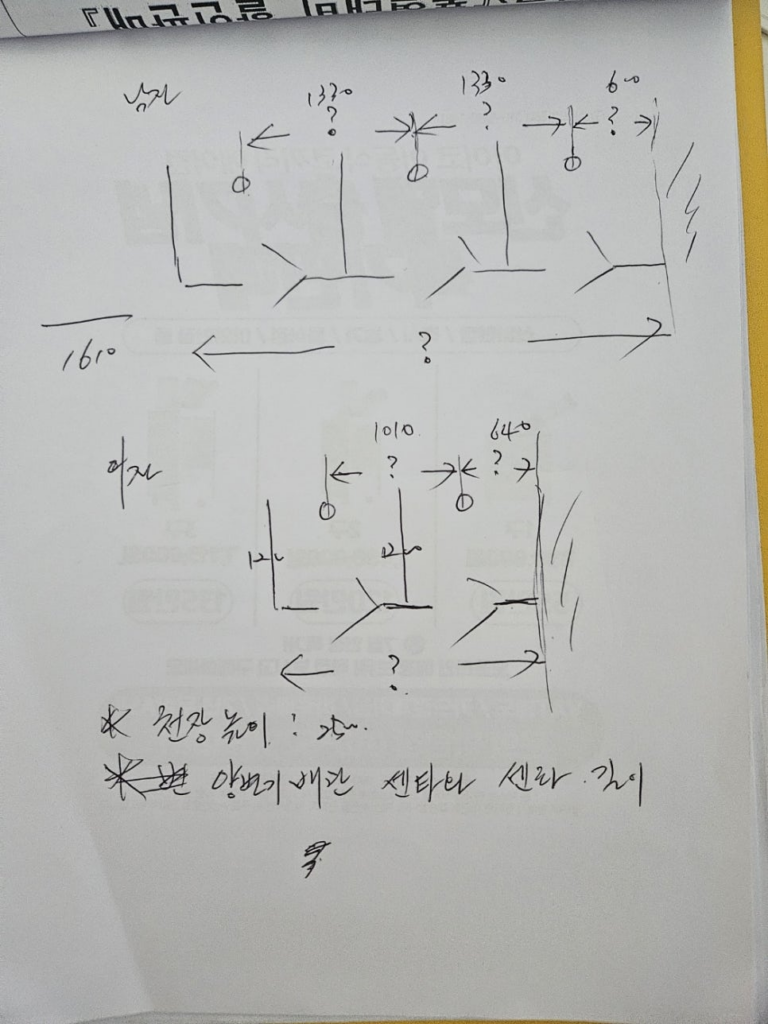 남자 1330 1330 600
? ? ?
1610 ?
여자 1010 640
? ?
1200 1200
?
* 천장높이 : 2500
* 양변기 배관 센타와 센타 길이